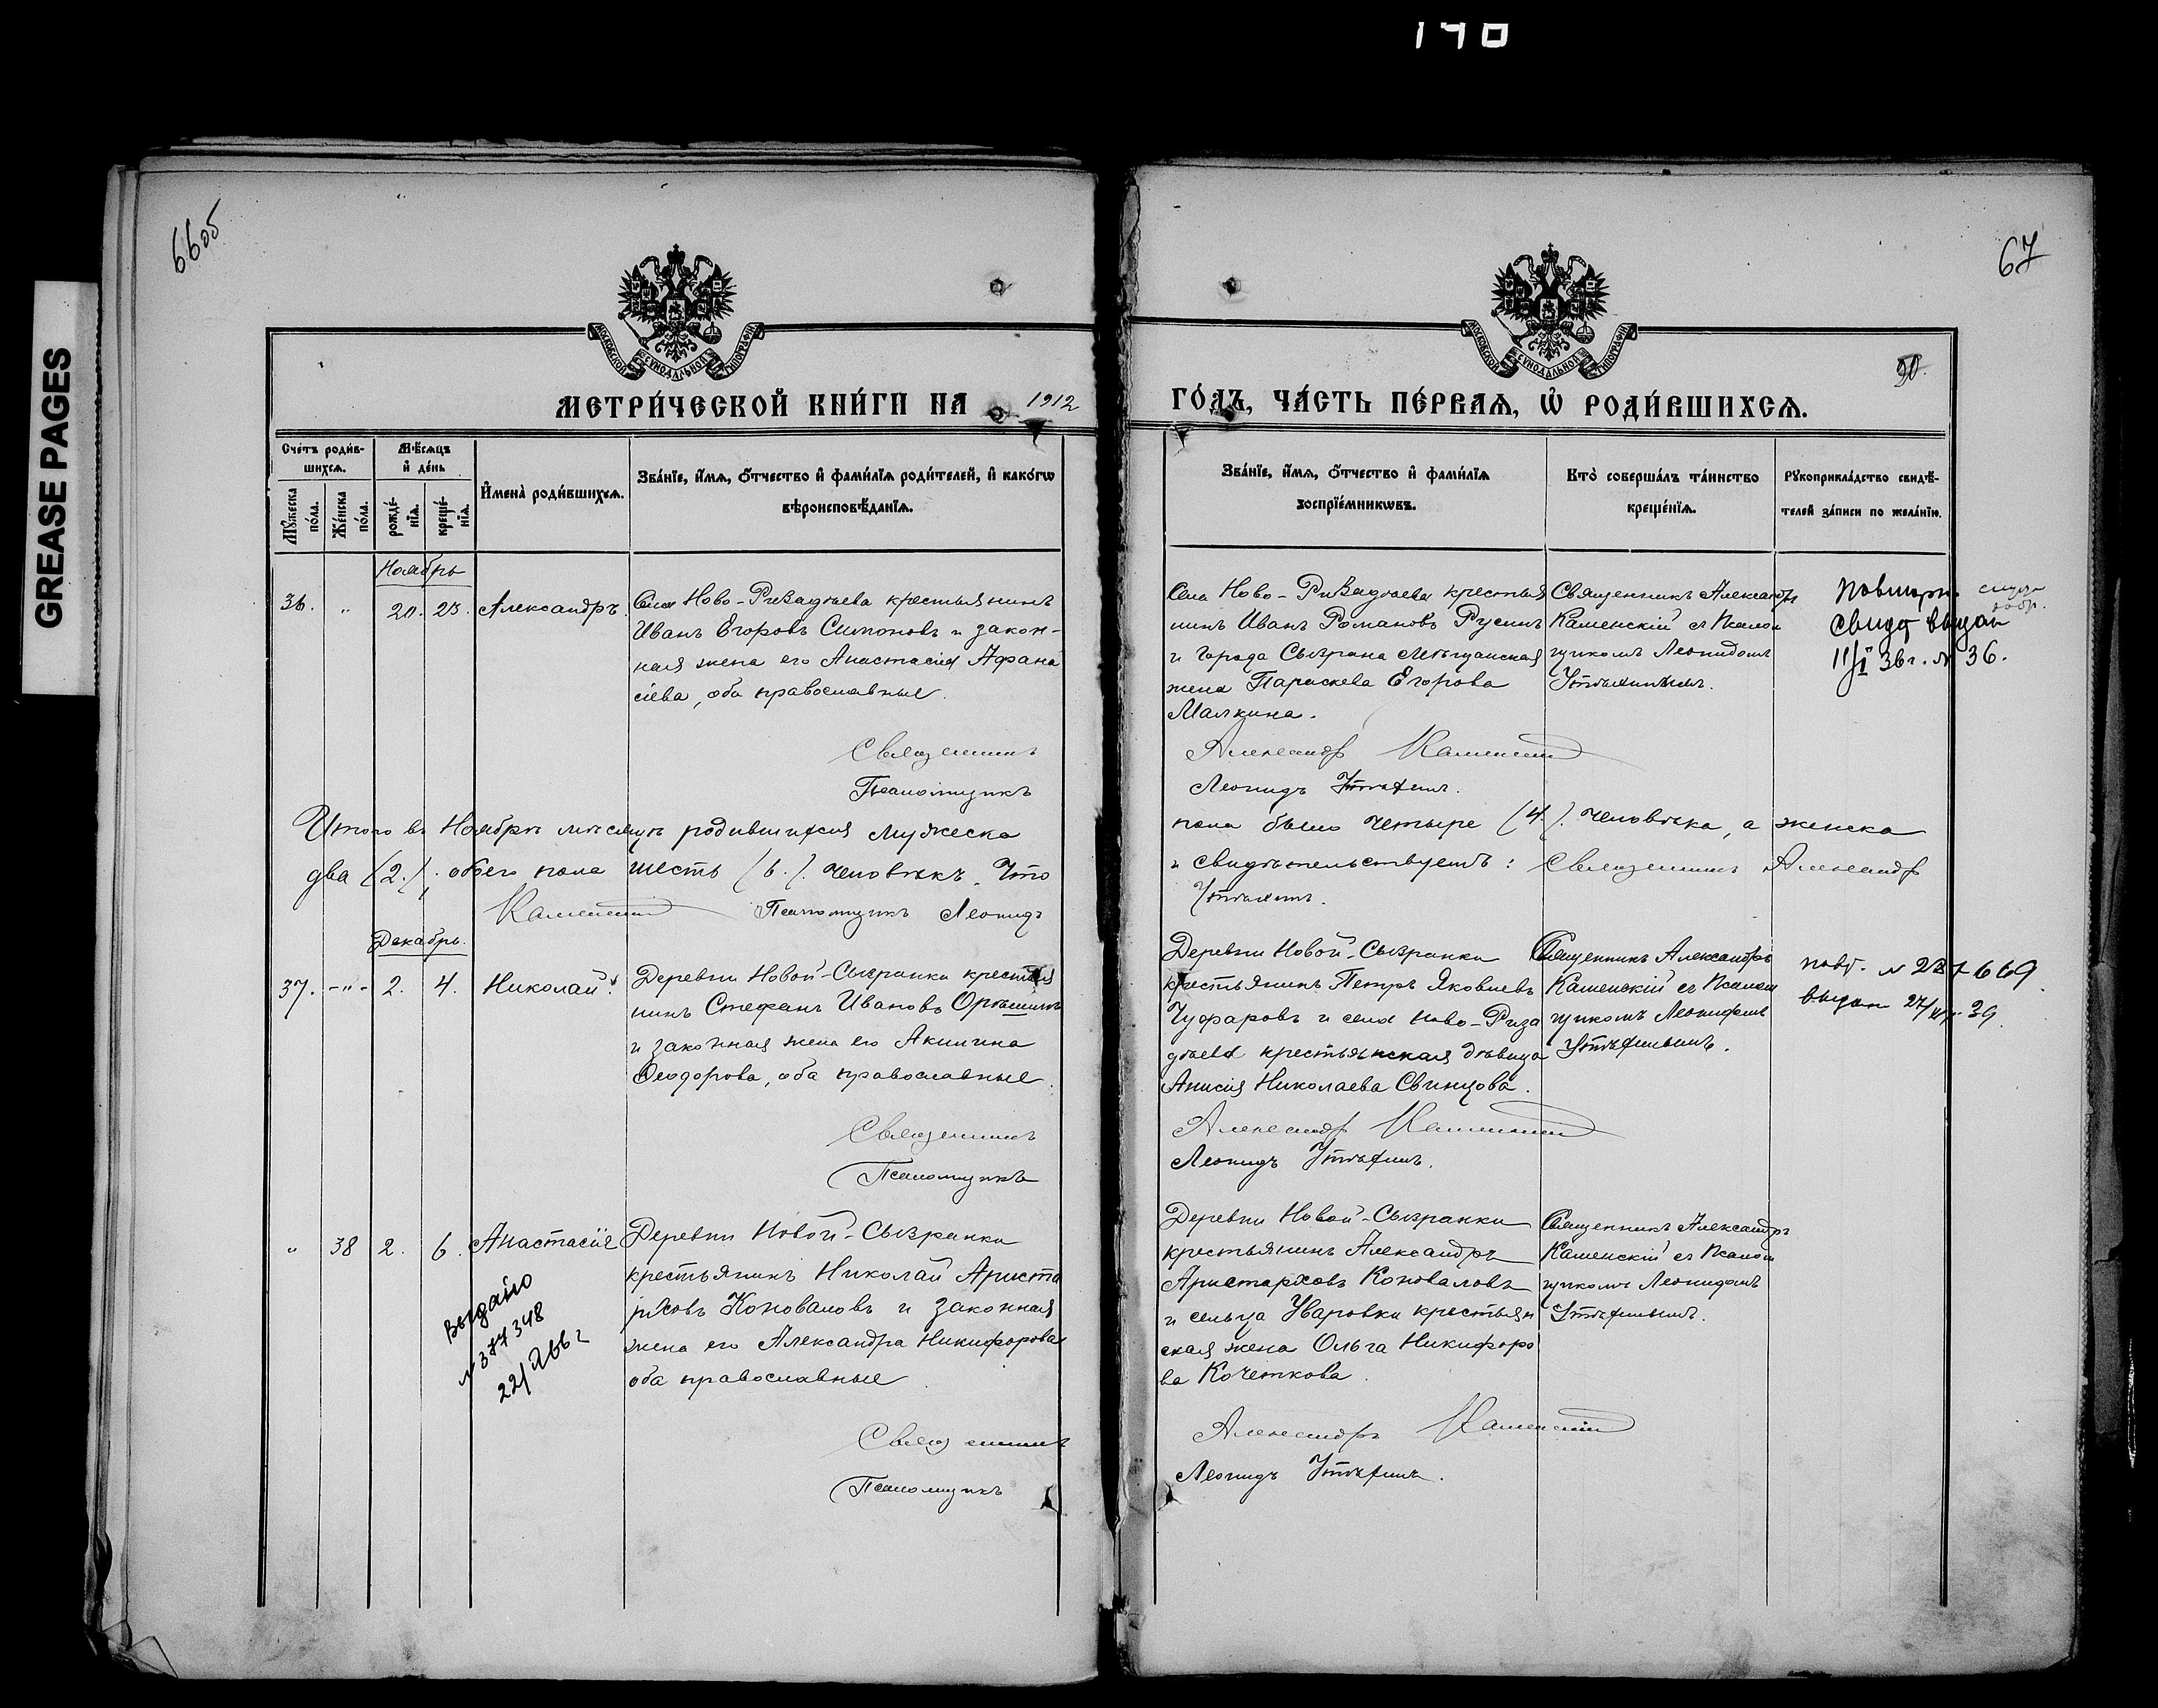 190
GREASE PAGES
66об
67
90.
МЕТРИ́ЧЕСКОЙ КНИ́ГИ НА 1912
ГО́ДЪ, ЧА́СТЬ ПЕ́РВАѦ, Ѡ҆ РОДИ́ВШИХСѦ.
Сче́тъ роди́в-
шихсѧ.
Мѣ́сѧцъ
и҆ де́нь
Мꙋ́жеска
по́ла.
Же́нска
по́ла.
рожде́-
нїѧ.
креще́-
нїѧ.
И҆мена̀ роди́вшихсѧ.
Зва́нїе, и҆́мѧ, ѻ҆́тчество и҆ фами́лїѧ роди́телей, и҆ како́гѡ
вѣроисповѣ́данїѧ.
Зва́нїе, и҆́мѧ, ѻ҆́тчество и҆ фами́лїѧ
воспрїе́мникѡвъ.
Кто̀ соверша́лъ та́инство
креще́нїѧ.
Рꙋкоприкла́дство свидѣ́-
телей за́писи по жела́нїю.
Ноябрь
36. " 20. 23. Александръ.
Села Ново-Ризадѣева крестьянинъ
Иванъ Егоровъ Симоновъ и закон-
ная жена его Анастасія Афана
сіева, оба православные.
Священникъ
Псаломщикъ
Села Ново-Ризадѣева крестья
нинъ Иванъ Романовъ Русинъ
и города Сызрана мѣщанская
жена Параскева Егорова
Малкина.
Александръ Каменскій
Леонидъ
Священникъ Александръ
Каменскій съ псалом
щикомъ Леонидомъ
Повторн.
свид выдан
11/I 36г. № 36.
Итого въ Ноябрѣ мѣсяцѣ родившихся мужеска
пола было четыре (4). человѣка, а женска
два (2). обоего пола шесть (6.). человѣкъ. Что
и свидѣтельствуетъ: Священникъ Александръ
Каменскій Псаломщикъ Леонидъ
Декабрь.
37. -"- 2. 4. Николай.
Деревни Новой-Сызранки крестья
нинъ Стефанъ Ивановъ Орѣшинъ
и законная жена его Акилина
Ѳеодорова, оба православные.
Священникъ
Псаломщикъ
Деревни Новой-Сызранки
крестьянинъ Петръ Яковлевъ
Чуфаровъ и села Ново-Риза
дѣева крестьянская дѣвица
Анисія Николаева Свинцова.
Александръ Каменскій
Леонидъ
Священникъ Александръ
Каменскій съ псалом
щикомъ Леонидомъ
повт.
выдан
" 38 2. 6. Анастасія
Выдано
№ 377348
22/
Деревни Новой-Сызранки
крестьянинъ Николай Ариста
рховъ Коноваловъ и законная
жена его Александра Никифорова
оба православные.
Священникъ
Псаломщикъ
Деревни Новой-Сызранки
крестьянинъ Александръ
Аристарховъ Коноваловъ
и сельца Уваровки крестьян
ская жена Ольга Никифоро
ва Кочеткова.
Александръ Каменскій
Леонидъ
Священникъ Александръ
Каменскій съ псалом
щикомъ Леонидомъ